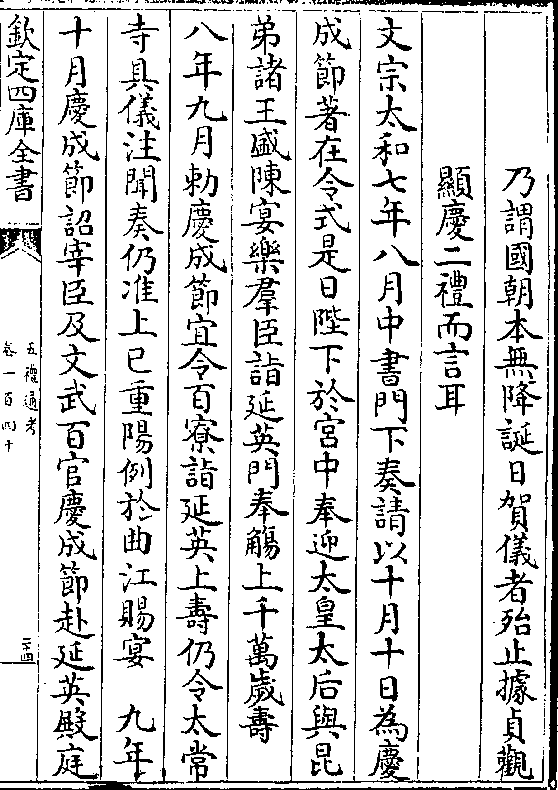 乃謂國朝本無降誕日賀儀者殆止據貞觀
顯慶二禮而言耳
文宗太和七年八月中書門下奏請以十月十日為慶
成節著在令式是日陛下於宮中奉迎太皇太后與昆
弟諸王盛陳宴樂羣臣詣延英門奉觴上千萬歲壽
八年九月勅慶成節宜令百寮詣延英上壽仍令太常
寺具儀注聞奏仍准上已重陽例於曲江賜宴　九年
十月慶成節詔宰臣及文武百官慶成節赴延英殿庭
欽定四庫全書
五禮通考
卷一百四十
二十四